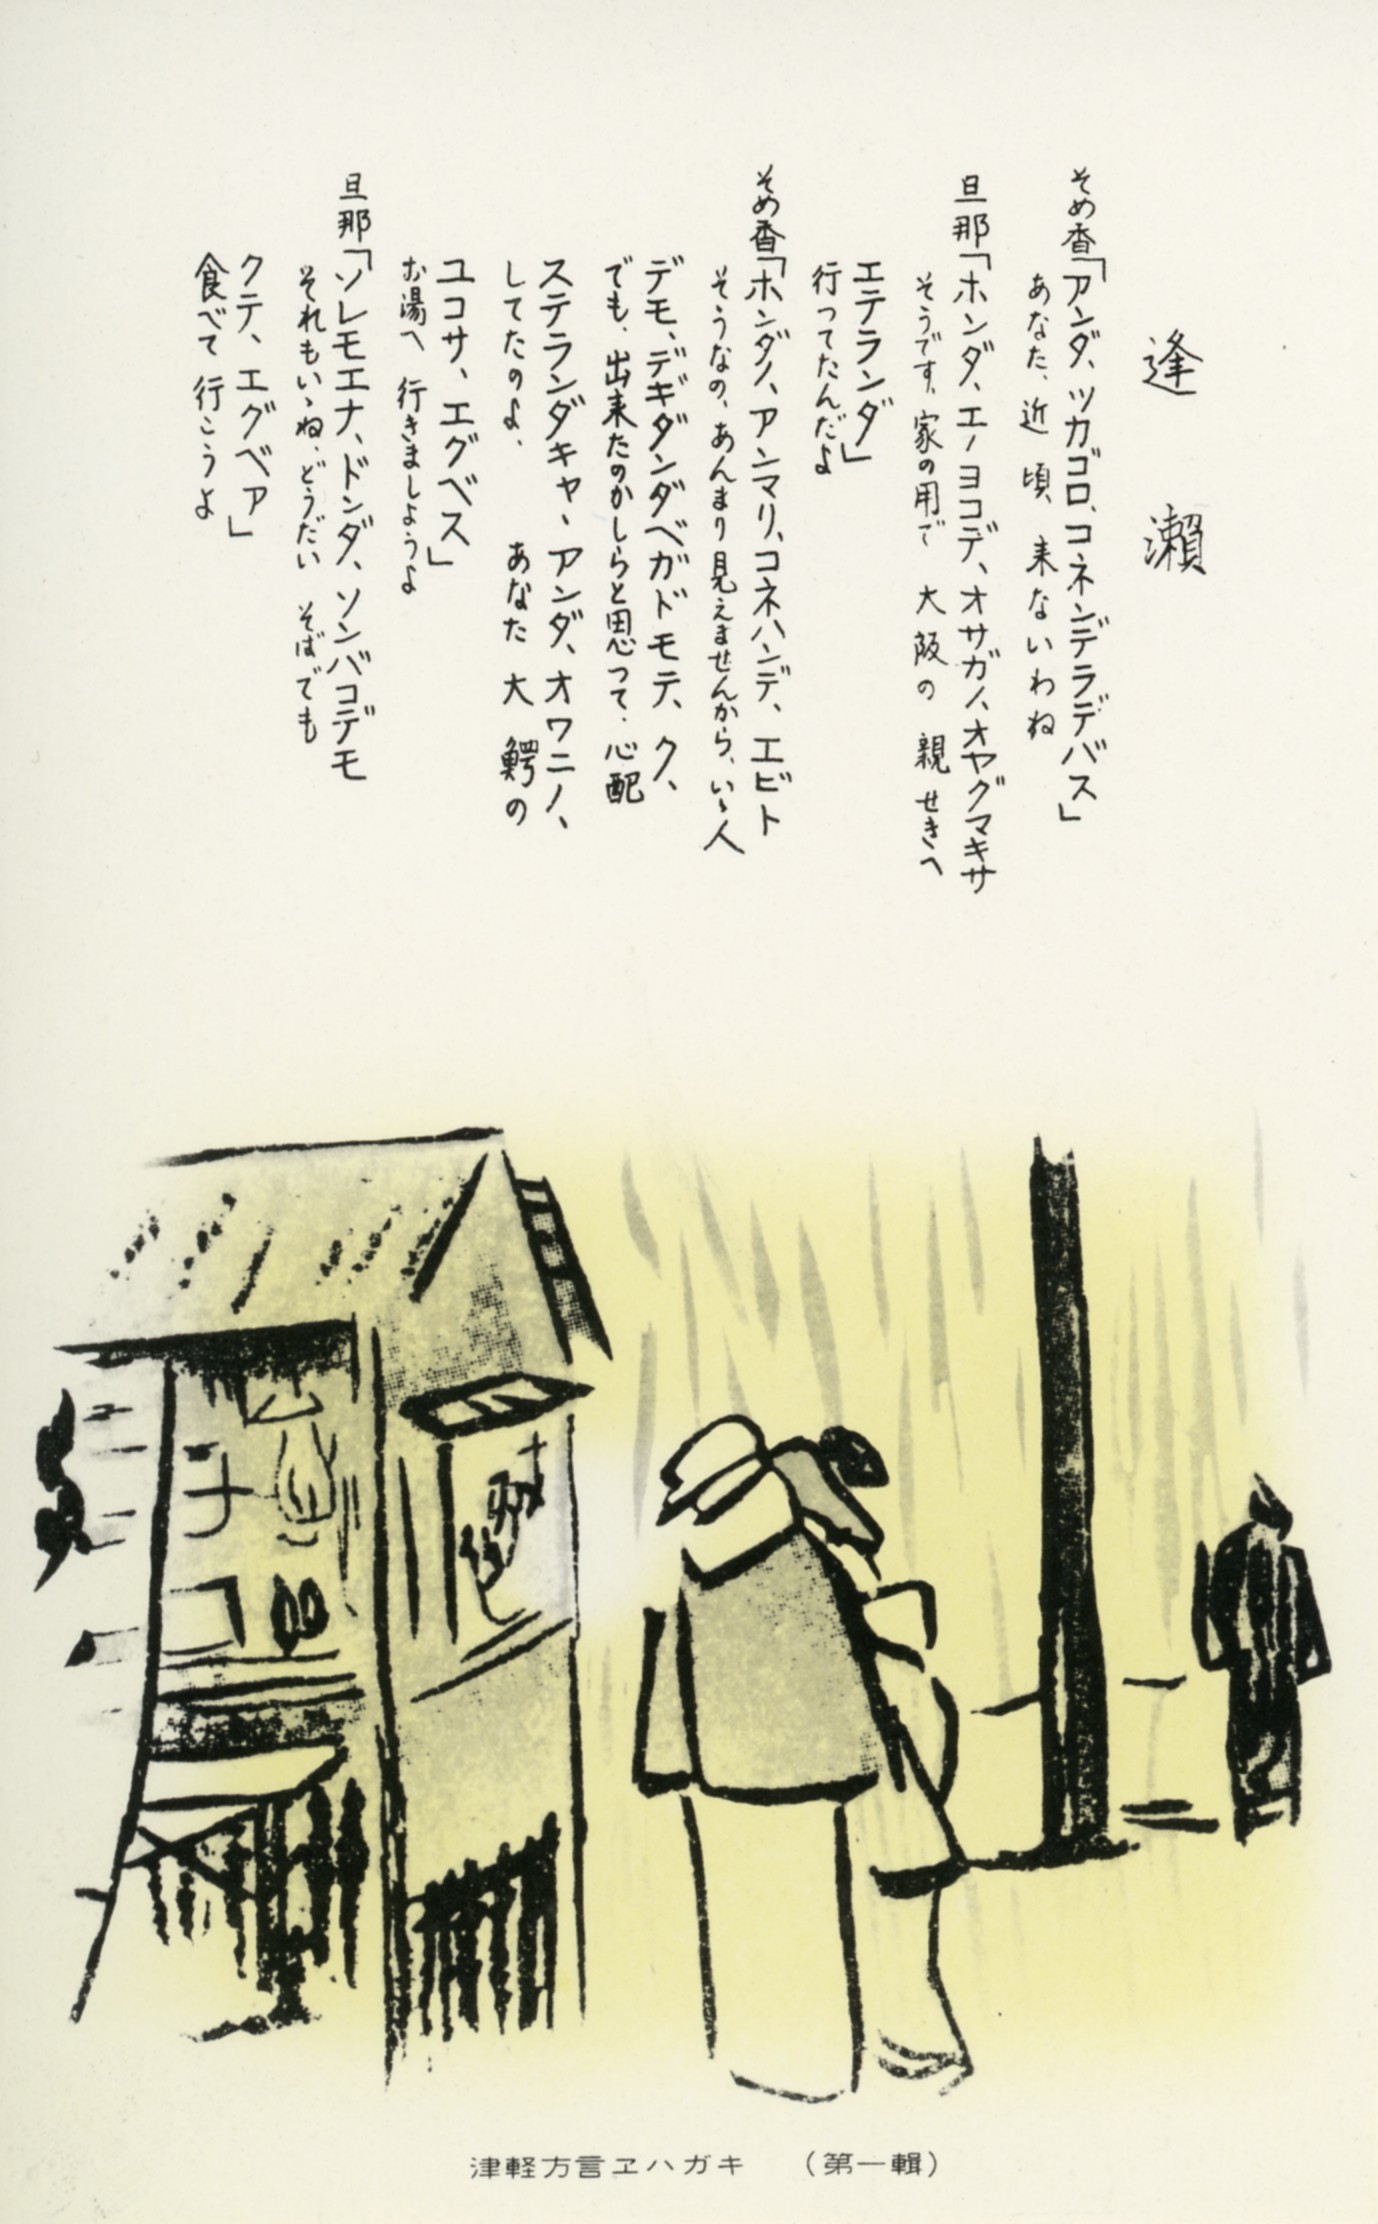 逢瀬
そめ香「アンダ、ツカゴロ、コネンデラデバス」
あなた、近頃、来ないわね
旦那「ホンダ、エノヨコデ、オサガノ、オヤグマキサ
そうです、家の用で 大阪の 親せきへ
エテランダ」
行ってたんだよ
そめ香「ホンダノ、アンマリ、コネハンデ、エビト
そうなの、あんまり見えませんから、いゝ人
デモ、デギダンダベガドモテ、ク、
でも、出来たのかしらと思って、心配
ステランダキャ、アンダ、オワニノ、
してたのよ、 あなた 大鰐の
ユコサ、エグベス」
お湯へ 行きましようよ
旦那「ソレモエナ、ドンダ、ソンバコデモ
それもいゝね、どうだい そばでも
クテ、エグベア」
食べて 行こうよ
津軽方言ヱハガキ (第一輯)